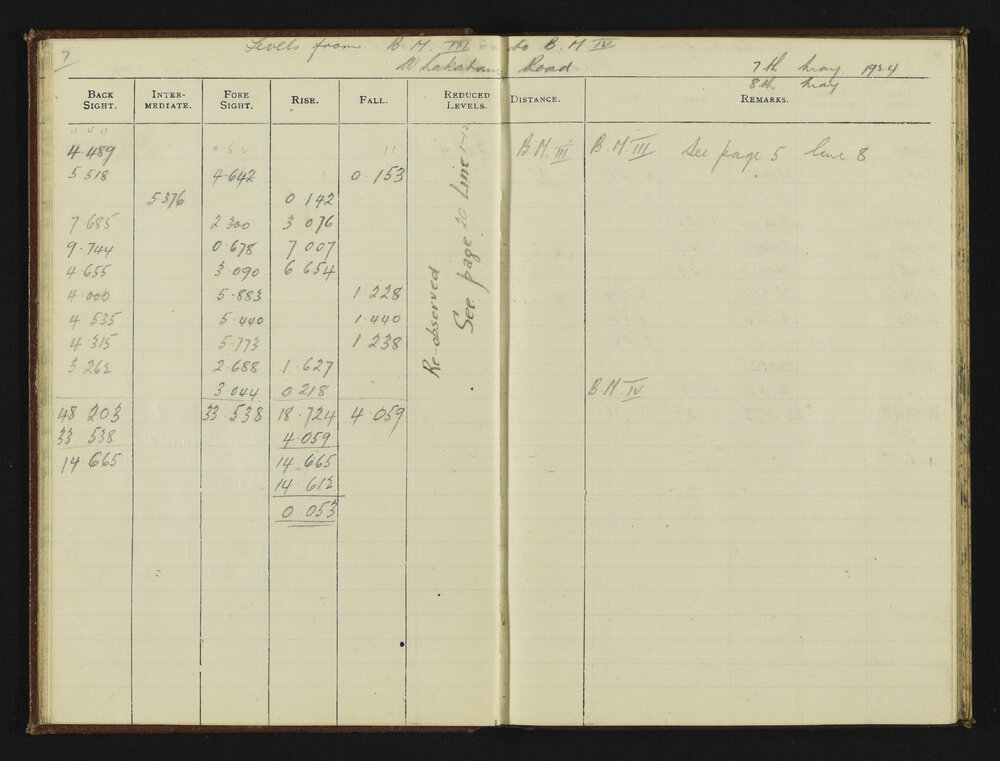 7 Levels from B. M. III to B. M IV
Road 7th May 1924
8th May
BACK SIGHT. INTER-MEDIATE. FORE SIGHT. RISE. FALL. REDUCED LEVELS. DISTANCE. REMARKS.
4.489 B.M. III B.M. III See page 5 line 8
5 518 4.642 0.153
5376 0 142
7 685 2 300 3 076
9.744 0.678 7 007
4 655 3.090 6 654
4.000 5.883 1 228
4 535 5.440 1.440
4 315 5.773 1 238
3 262 2.688 1.627
3 044 0 218 B.M. IV
48 203 33.538 18.724 4 059
33 538 4.059
14 665 14 665
14.612
0 053
Re-observed
See page 20 Line 1-12